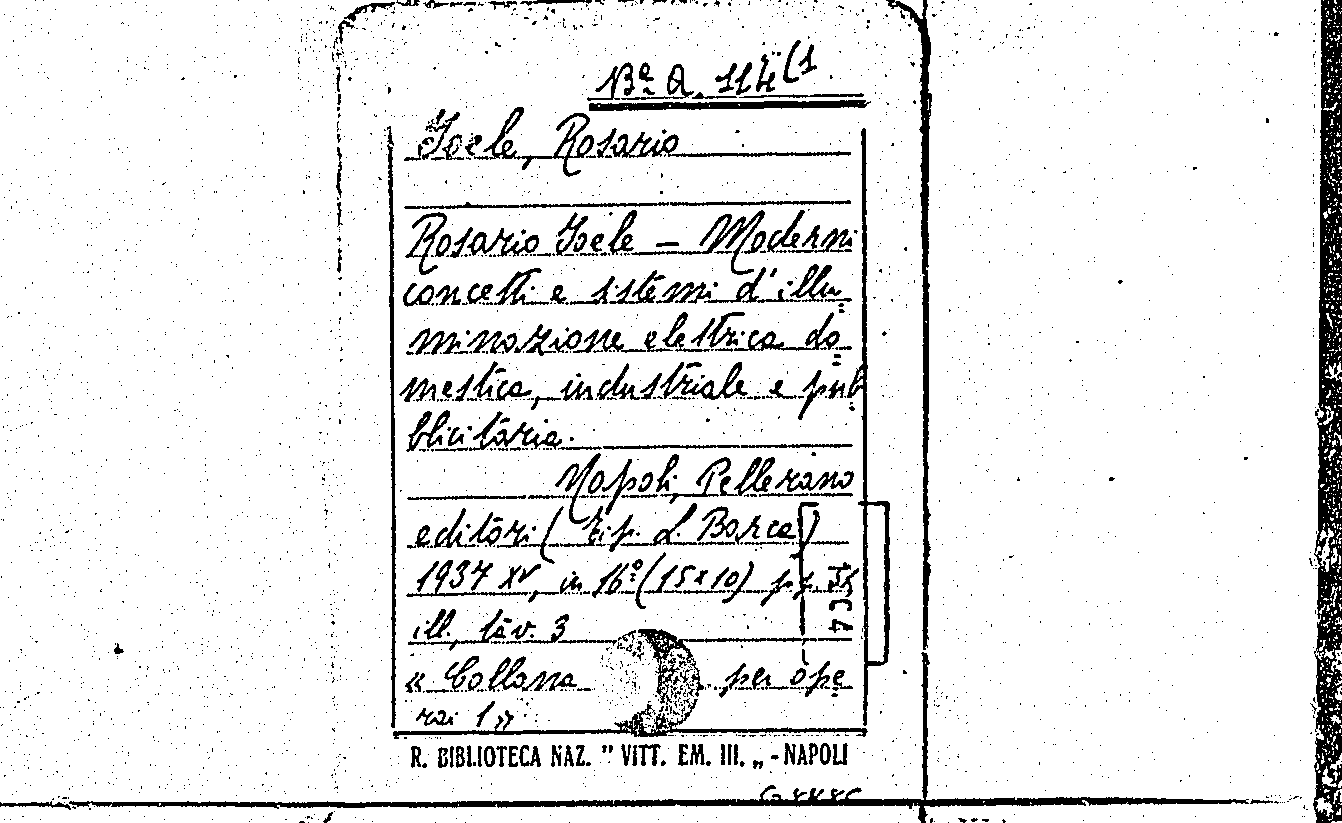 13ª Q. 114 (1
Joele, Rosario
Rosario Joele — Moderni
concetti e sistemi d'illu=
minazione elettrica do=
mestica, industriale e pub=
blicitaria.
Napoli, Pellerano
editori (Tip. d. Barca)
1937 XV, in 16º (15x10) pp.
ill., tav. 3
« Collana per ope
rai 1 »
R. BIBLIOTECA NAZ. " VITT. EM. III. „ - NAPOLI